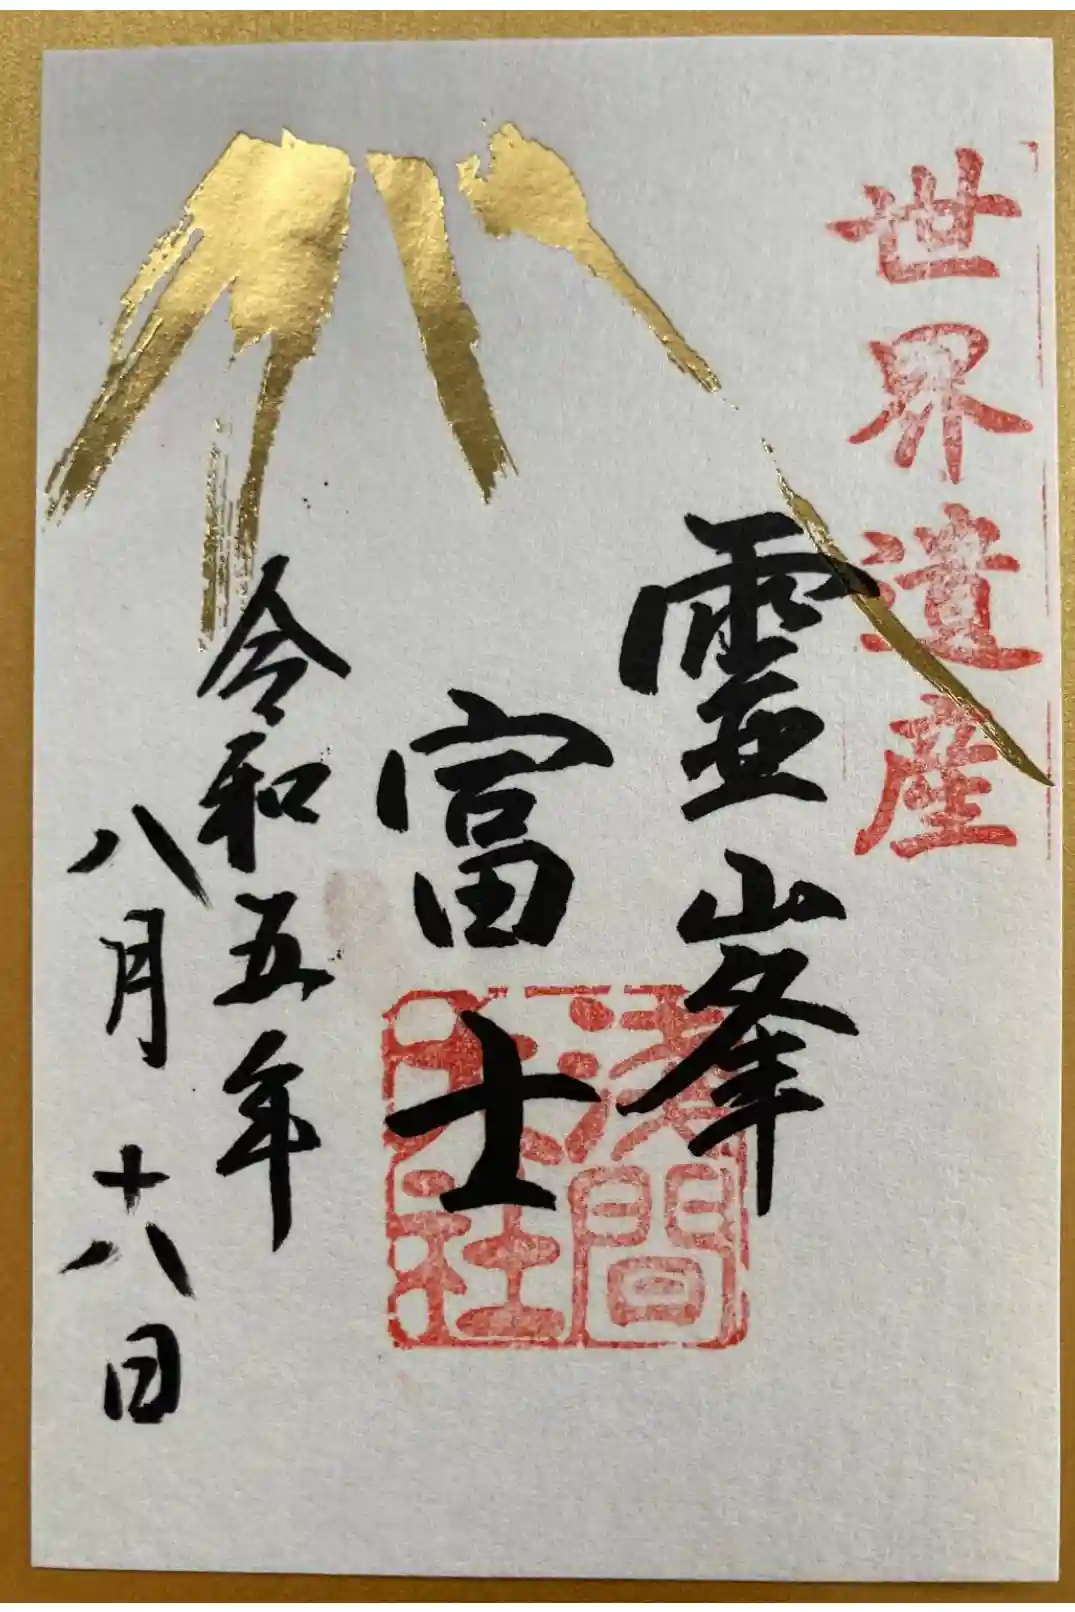 世界遺産
靈峯
富士
淺間
大社
令和五年
八月十八日